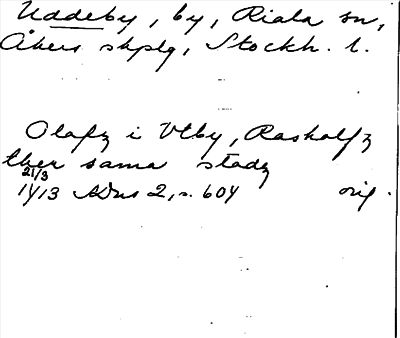 Uddeby, by, Riala sn,
Åkers skplg, Stockh. l.
Olafz i Vtby, Raskalfz
ther sama stadz
21/3
1413 SDns 2, s. 604 orig.